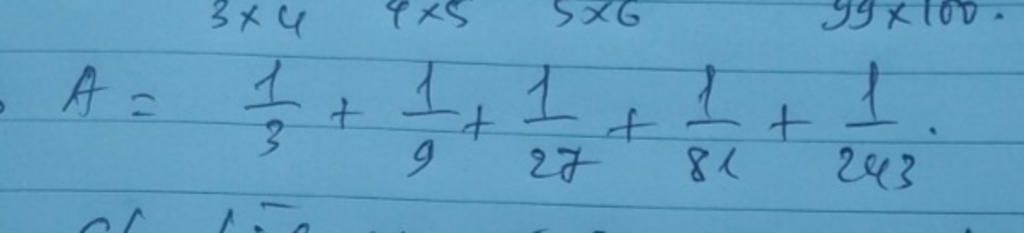 3×4 4×5 5×6 99×100.
A = 1/3 + 1/9 + 1/27 + 1/81 + 1/243.